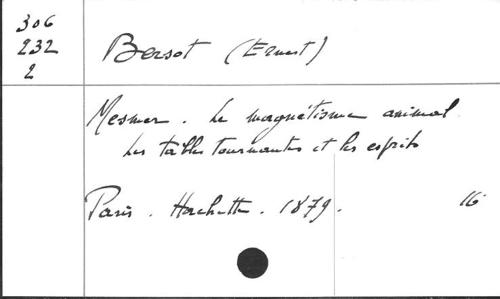 306
232
2
Bersot (Ernest)
Mesmer. Le magnétisme animal
Les tables tournantes et les esprits
Paris. Hachette. 1879.
16